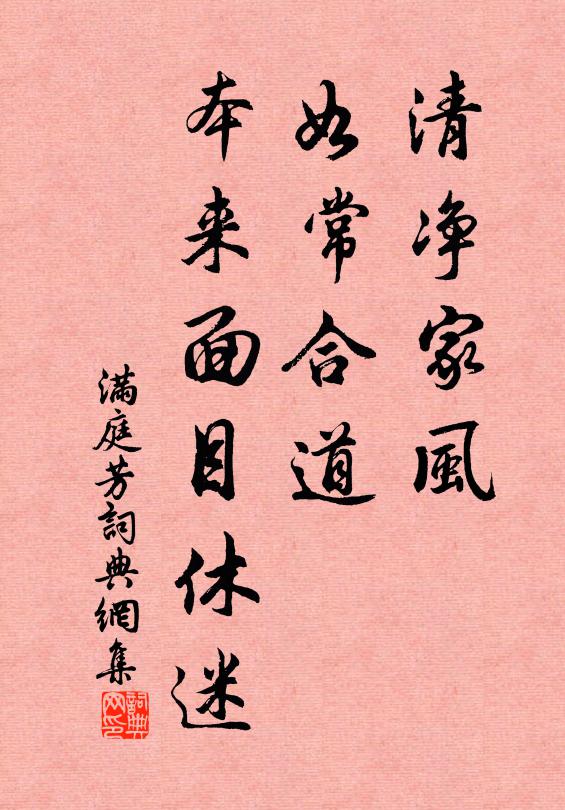 清净家風
如常合道
本来面目休迷
滿庭芳詞典網集
詞典网印